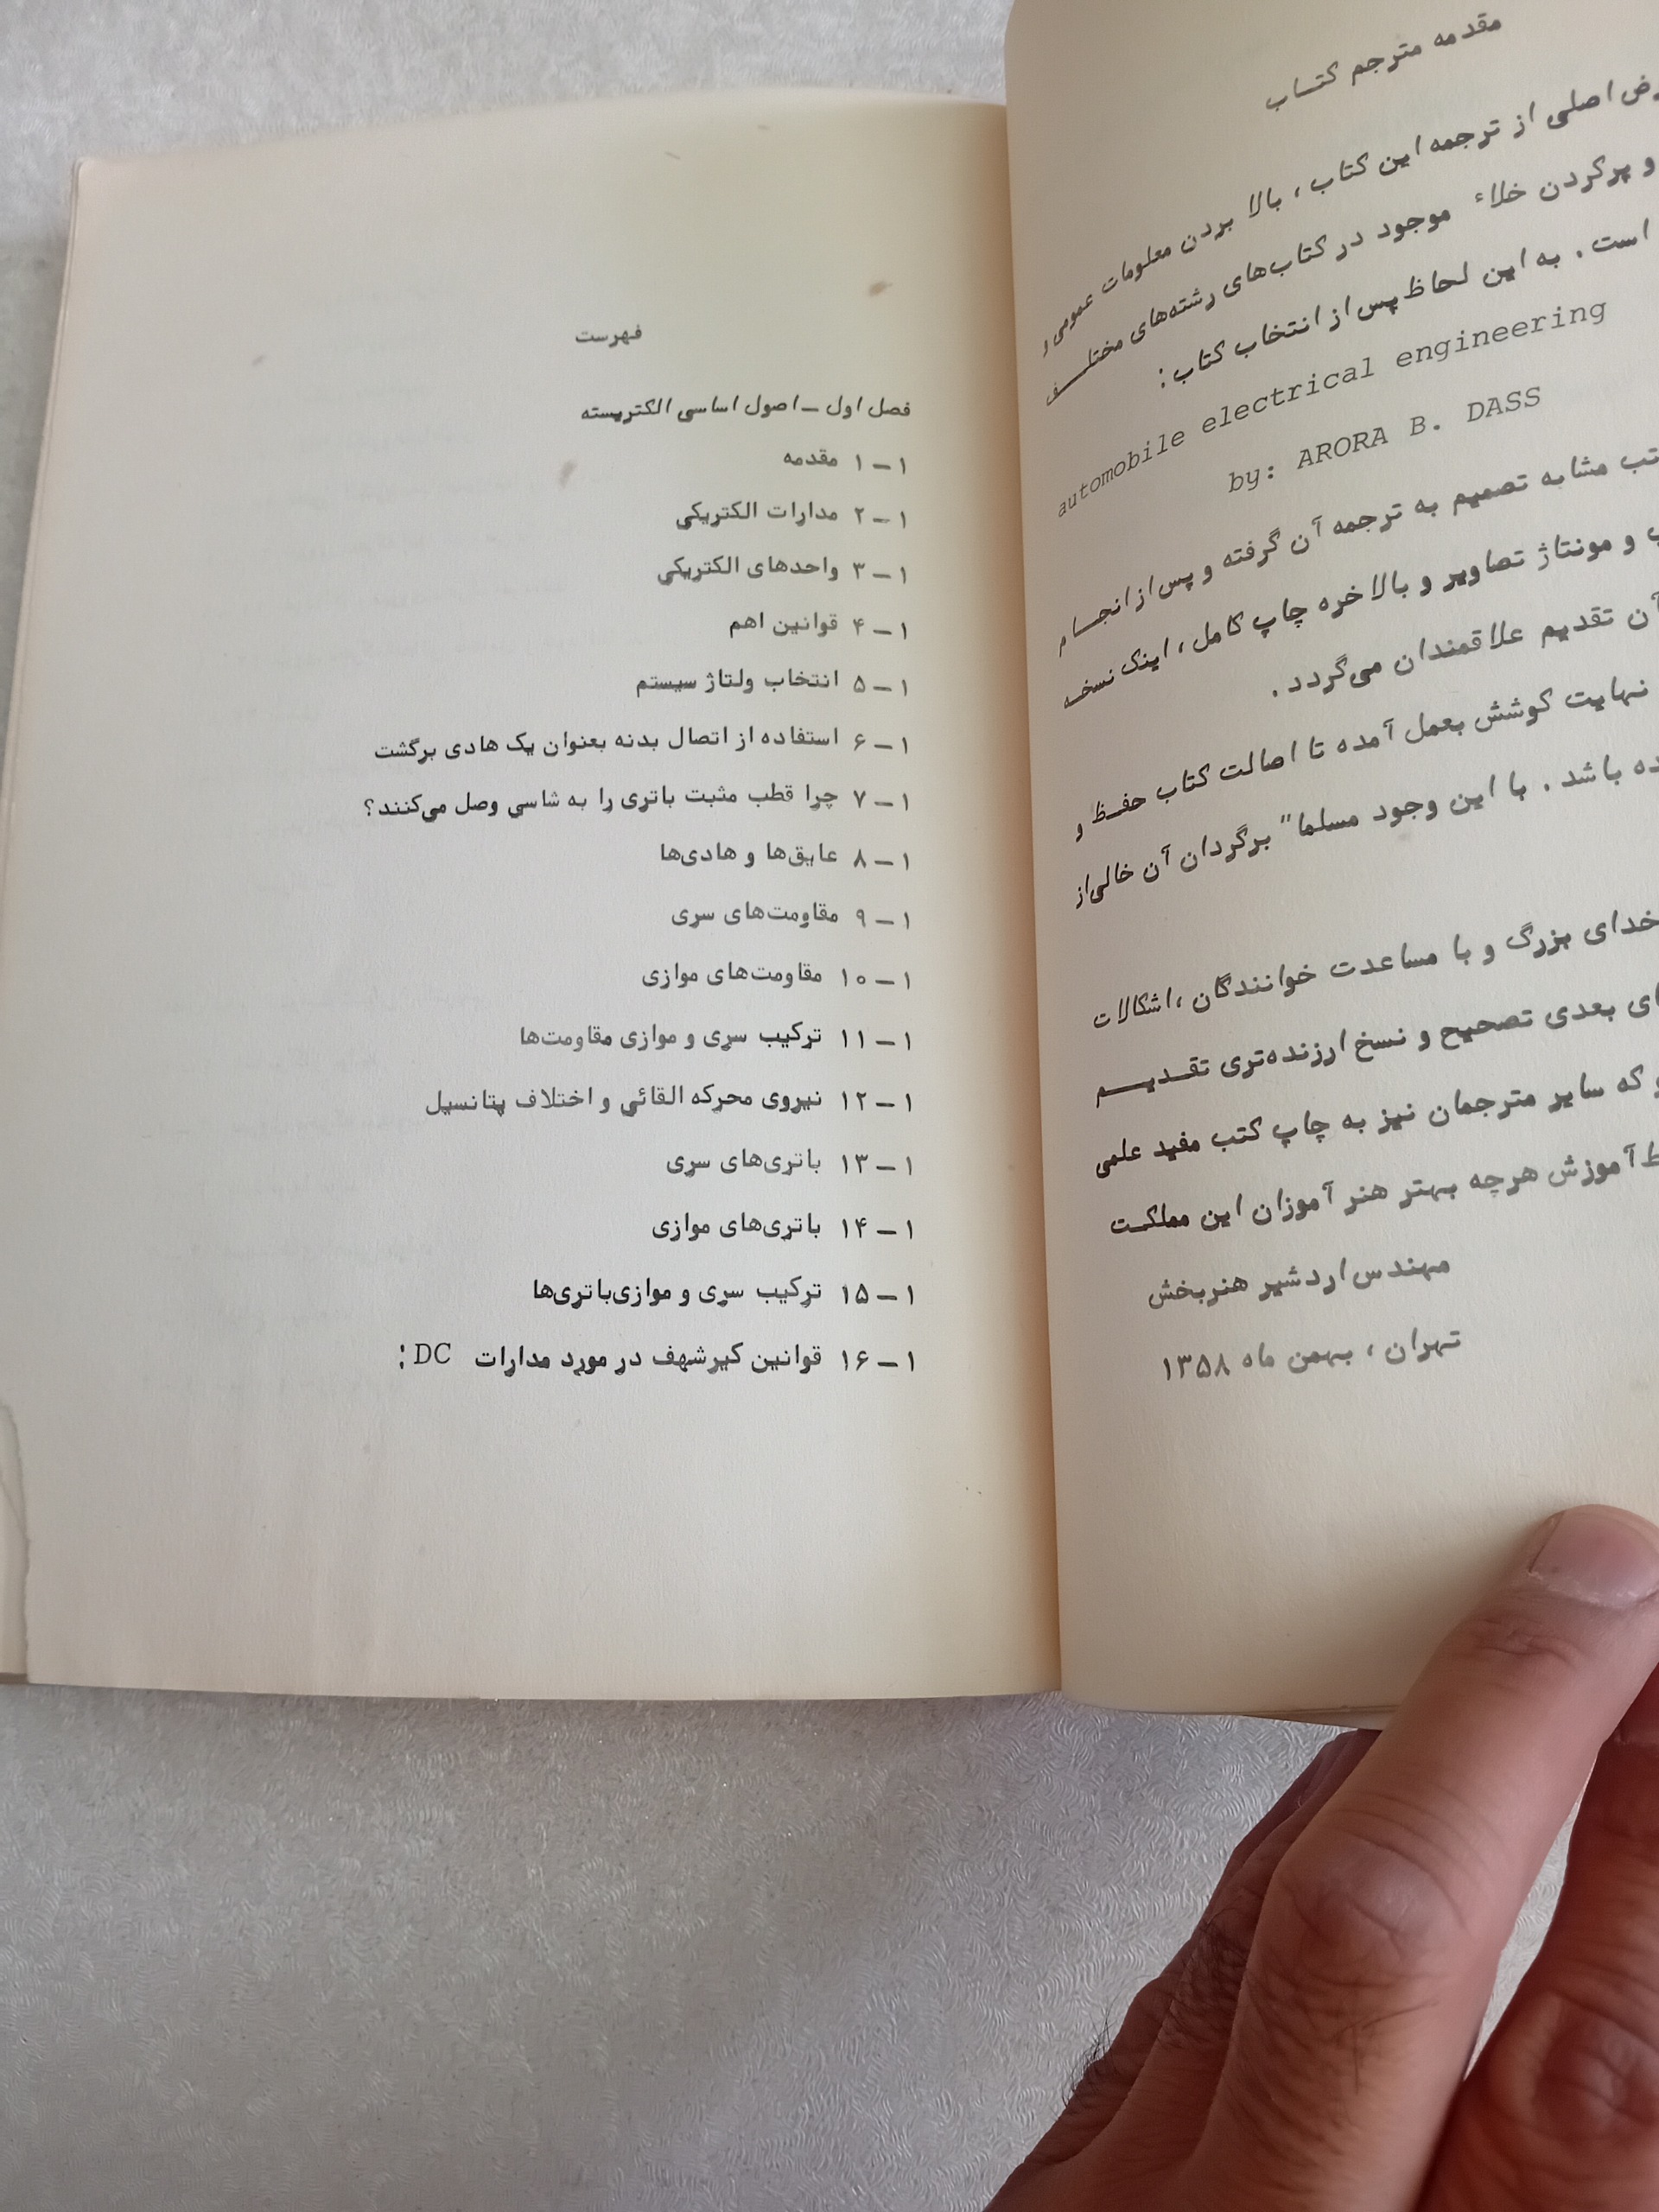 مقدمه مترجم کتاب
اصلی از ترجمه این کتاب، بالا بردن معلومات عمومی
و پرکردن خلاء موجود در کتاب‌های رشته‌های مختلف
است. به این لحاظ پس از انتخاب کتاب:
automobile electrical engineering
by: ARORA B. DASS
مشابه تصمیم به ترجمه آن گرفته و پس از انجام
و مونتاژ تصاویر و بالاخره چاپ کامل، اینک نسخه
آن تقدیم علاقمندان می‌گردد.
نهایت کوشش بعمل آمده تا اصالت کتاب حفظ و
باشد. با این وجود مسلما" برگردان آن خالی از
خدای بزرگ و با مساعدت خوانندگان، اشکالات
بعدی تصحیح و نسخ ارزنده‌تری تقدیم
که سایر مترجمان نیز به چاپ کتب مفید علمی
آموزش هرچه بهتر هنر آموزان این مملکت
مهندس اردشیر هنربخش
تهران، بهمن ماه ۱۳۵۸
فهرست
فصل اول – اصول اساسی الکتریسته
۱ – ۱ مقدمه
۱ – ۲ مدارات الکتریکی
۱ – ۳ واحدهای الکتریکی
۱ – ۴ قوانین اهم
۱ – ۵ انتخاب ولتاژ سیستم
۱ – ۶ استفاده از اتصال بدنه بعنوان یک هادی برگشت
۱ – ۷ چرا قطب مثبت باتری را به شاسی وصل می‌کنند؟
۱ – ۸ عایق‌ها و هادی‌ها
۱ – ۹ مقاومت‌های سری
۱ – ۱۰ مقاومت‌های موازی
۱ – ۱۱ ترکیب سری و موازی مقاومت‌ها
۱ – ۱۲ نیروی محرکه القائی و اختلاف پتانسیل
۱ – ۱۳ باتری‌های سری
۱ – ۱۴ باتری‌های موازی
۱ – ۱۵ ترکیب سری و موازی باتری‌ها
۱ – ۱۶ قوانین کیرشهف در مورد مدارات DC :